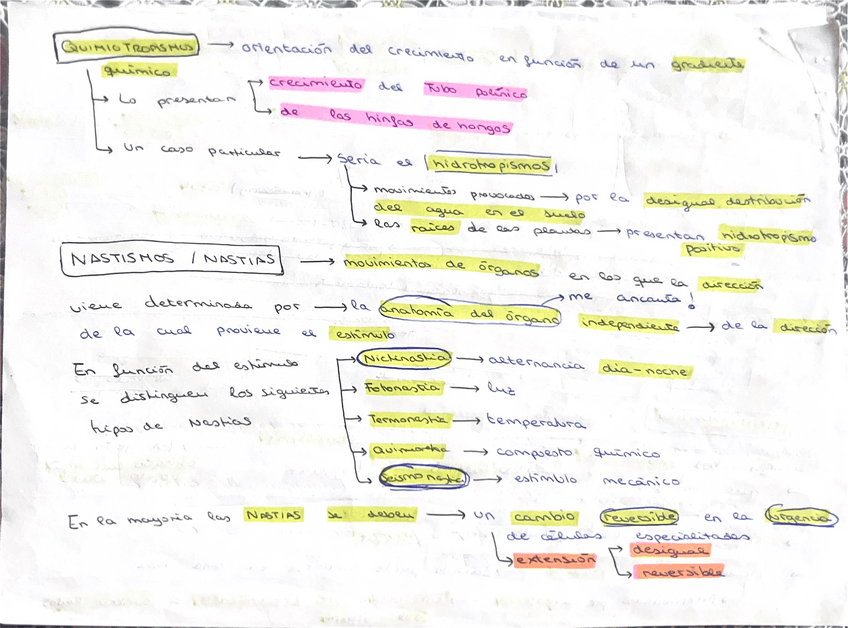 QUIMIOTROPISMOS → orientación del crecimiento en función de un gradiente
químico
→ Lo presentan → crecimiento del tubo polínico
→ de las hinfas de hongos
→ Un caso particular → Seria el hidrotropismos
→ movimientos provocados → por la desigual distribución
del agua en el suelo
→ las raices de las plantas → presentan hidrotropismo
positivo
NASTISMOS / NASTIAS → movimientos de órganos en los que la dirección
→ me encanta!
viene determinada por → la anatomía del órgano independiente → de la dirección
de la cual proviene el estímulo
En función del estímulo
se distinguen los siguientes
tipos de Nastias
→ Nictinastia → alternancia dia-noche
→ Fotonastia → luz
→ Termonastia → temperatura
→ → compuesto químico
→ Seismonastia → estímulo mecánico
En la mayoria las NASTIAS se deben → un cambio reversible en la turgencia
de células especializadas
→ extensión → desigual
→ reversible